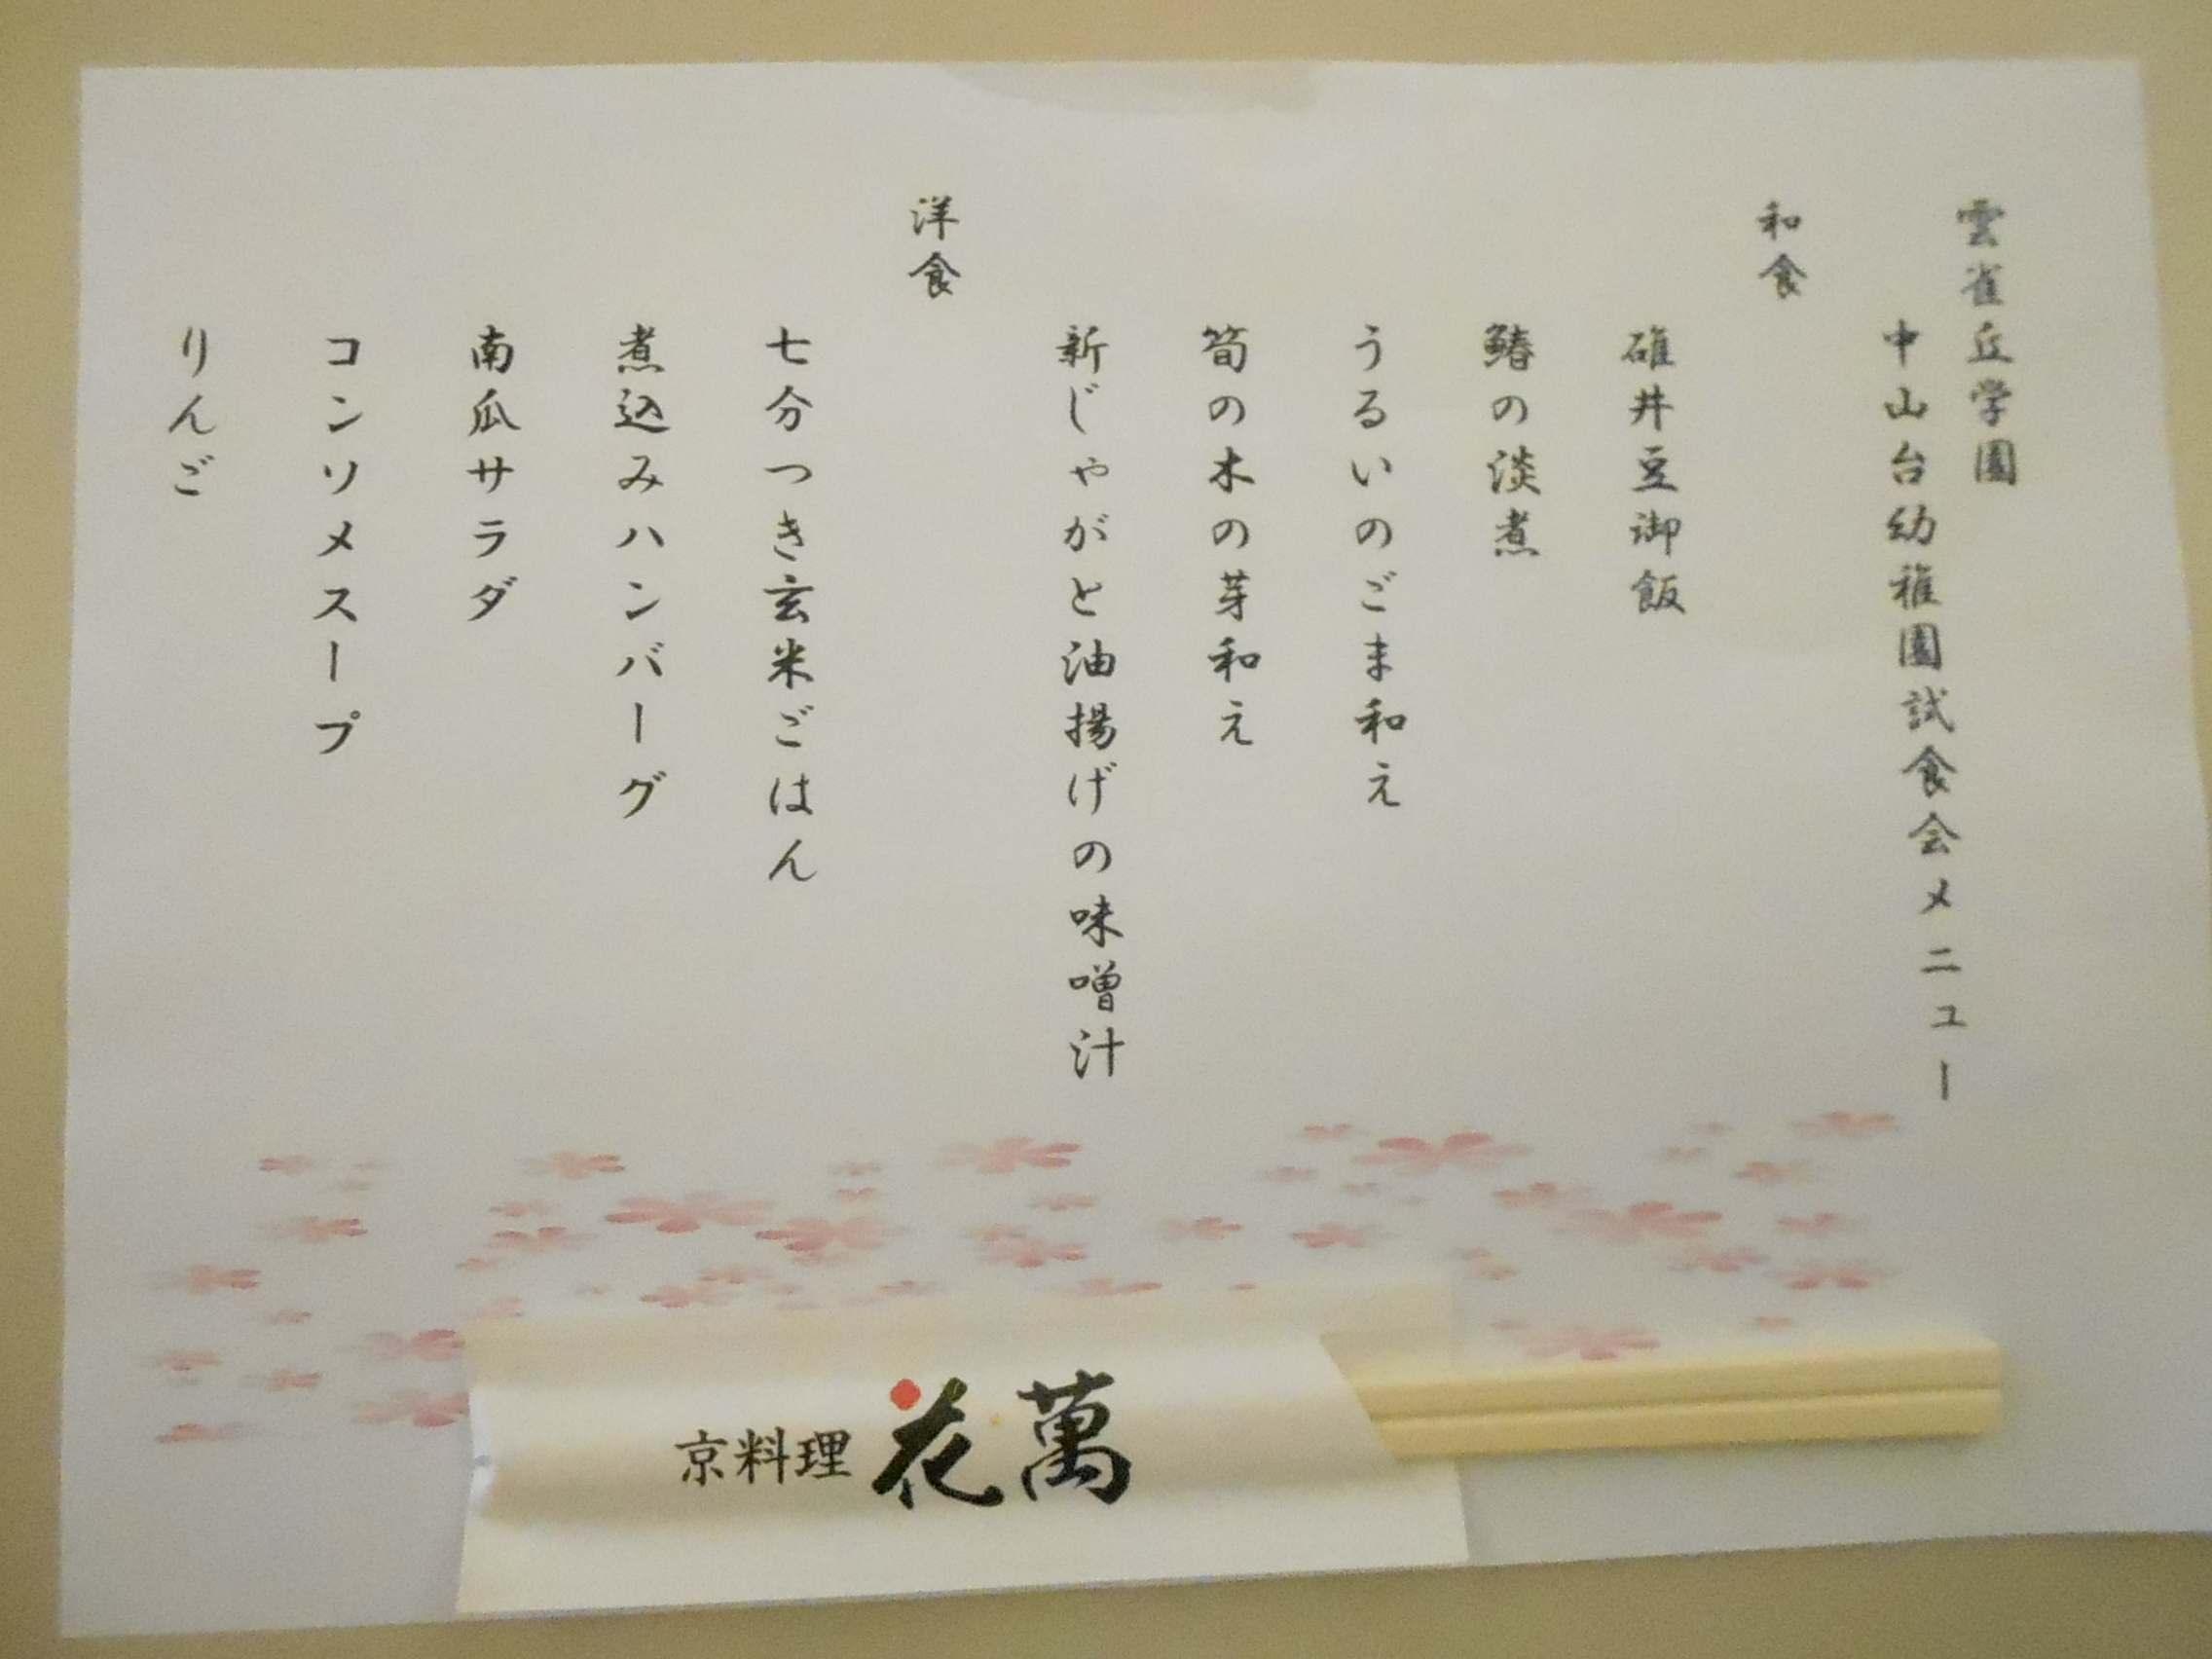 雲雀丘学園
中山台幼稚園試食会メニュー
和食
碓井豆御飯
鰆の淡煮
うるいのごま和え
筍の木の芽和え
新じゃがと油揚げの味噌汁
洋食
七分つき玄米ごはん
煮込みハンバーグ
南瓜サラダ
コンソメスープ
りんご
京料理 花萬